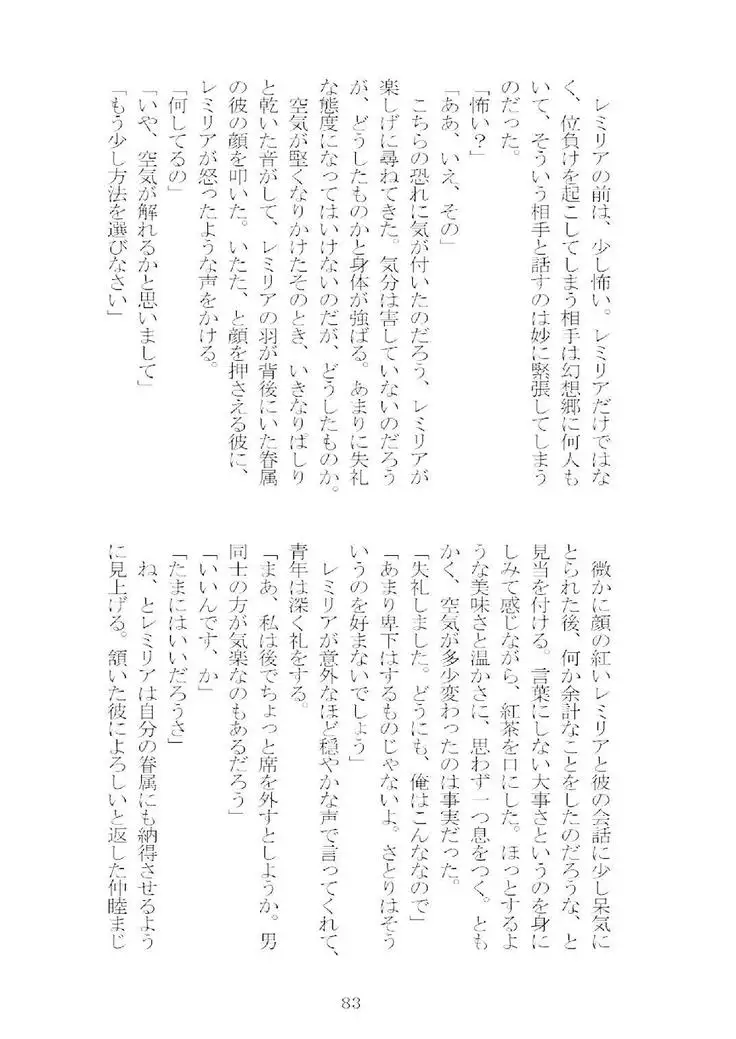 レミリアの前は、少し怖い。レミリアだけではな
く、位負けを起こしてしまう相手は幻想郷に何人も
いて、そういう相手と話すのは妙に緊張してしまう
のだった。
「怖い？」
「ああ、いえ、その」
　こちらの恐れに気が付いたのだろう、レミリアが
楽しげに尋ねてきた。気分は害していないのだろう
が、どうしたものかと身体が強ばる。あまりに失礼
な態度になってはいけないのだが、どうしたものか。
　空気が堅くなりかけたそのとき、いきなりばしり
と乾いた音がして、レミリアの羽が背後にいた眷属
の彼の顔を叩いた。いたた、と顔を押さえる彼に、
レミリアが怒ったような声をかける。
「何してるの」
「いや、空気が解れるかと思いまして」
「もう少し方法を選びなさい」
　微かに顔の紅いレミリアと彼の会話に少し呆気に
とられた後、何か余計なことをしたのだろうな、と
見当を付ける。言葉にしない大事さというのを身に
しみて感じながら、紅茶を口にした。ほっとするよ
うな美味さと温かさに、思わず一つ息をつく。とも
かく、空気が多少変わったのは事実だった。
「失礼しました。どうにも、俺はこんななので」
「あまり卑下はするものじゃないよ。さとりはそう
いうのを好まないでしょう」
　レミリアが意外なほど穏やかな声で言ってくれて、
青年は深く礼をする。
「まあ、私は後でちょっと席を外すとしようか。男
同士の方が気楽なのもあるだろう」
「いいんです、か」
「たまにはいいだろうさ」
　ね、とレミリアは自分の眷属にも納得させるよう
に見上げる。頷いた彼によろしいと返した仲睦まじ
83